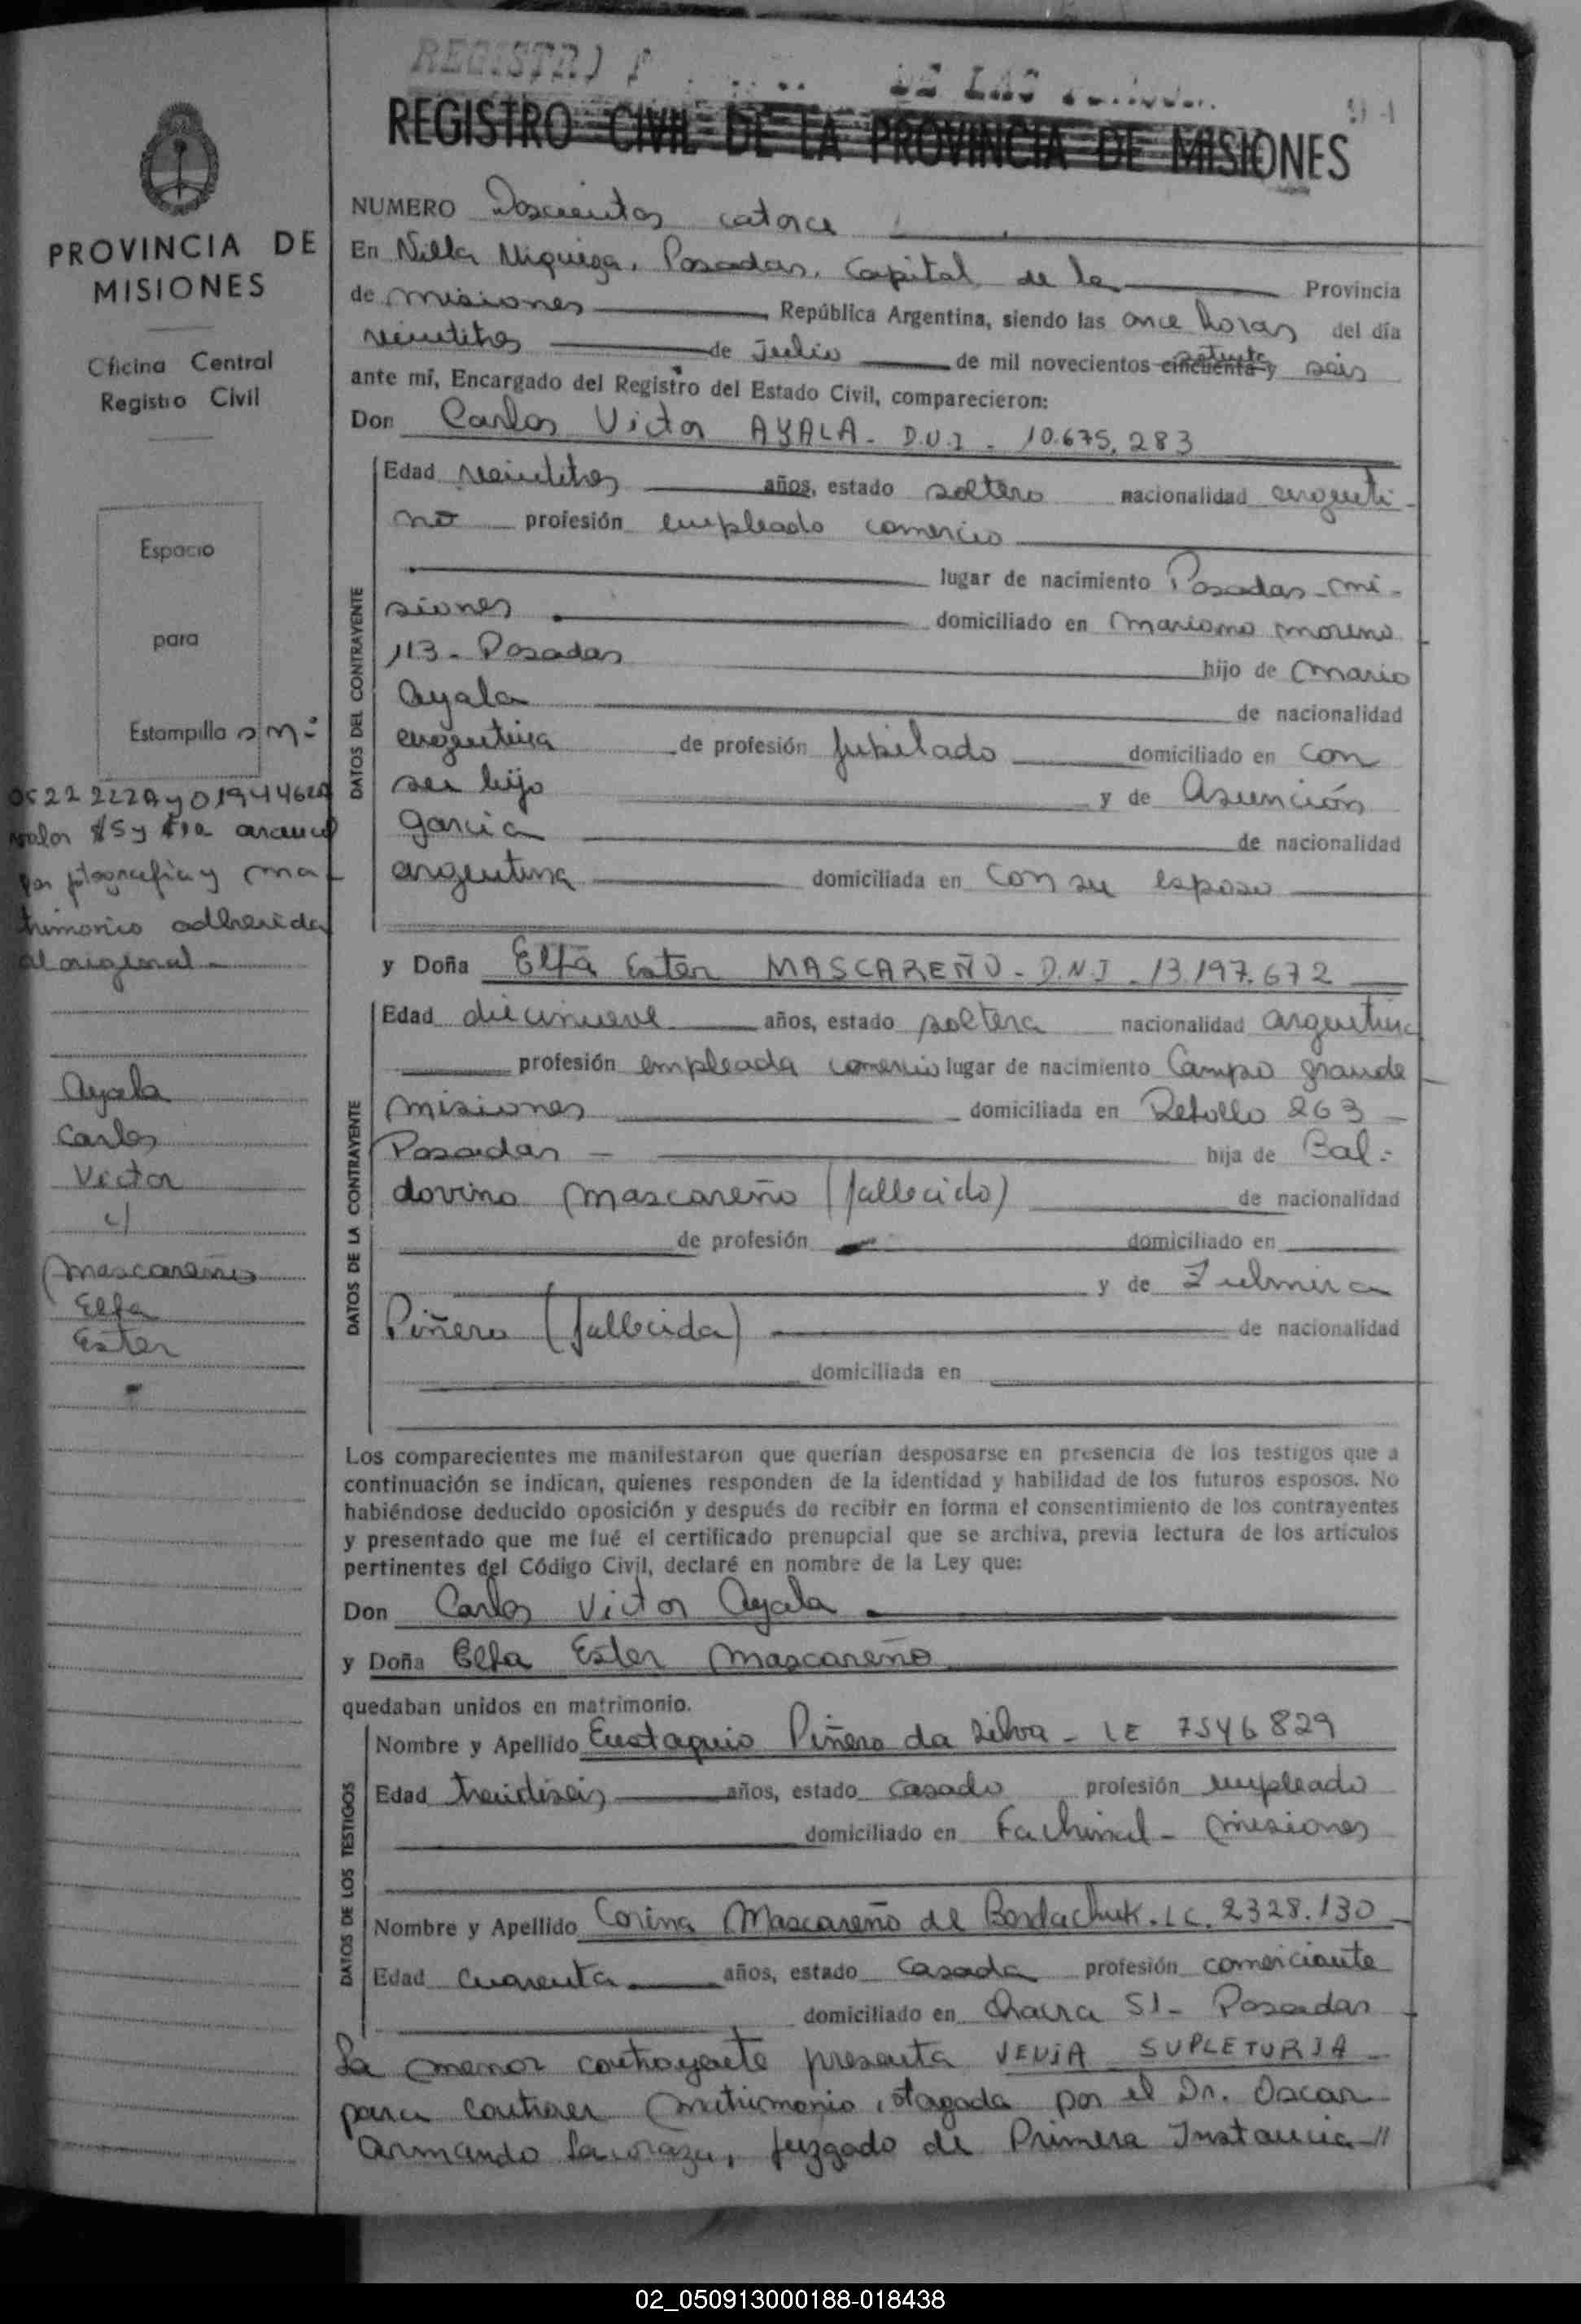 REGISTRO DE LAS
REGISTRO CIVIL DE LA PROVINCIA DE MISIONES
94
PROVINCIA DE
MISIONES
Oficina Central
Registro Civil
Espacio
para
Estampilla s/n:
0522 222A y 01944462A
valor $5 y $12 arancel
por fotografia y ma-
trimonio adherida
al original -
Ayala
Carlos
Victor
c/
Mascareño
Elfa
Ester
NUMERO Doscientos catorce
En Villa Urquiza, Posadas, Capital de la Provincia
de Misiones República Argentina, siendo las once horas del día
veintitres de Julio de mil novecientos cincuenta setenta y seis
ante mí, Encargado del Registro del Estado Civil, comparecieron:
Don Carlos Victor AYALA - D.N.I - 10.675.283
DATOS DEL CONTRAYENTE
Edad veintitres años, estado soltero nacionalidad argenti-
no profesión empleado comercio
lugar de nacimiento Posadas - Mi-
siones domiciliado en Mariano Moreno
113 - Posadas hijo de Mario
Ayala de nacionalidad
argentina de profesión Jubilado domiciliado en con
su hijo y de Asunción
Garcia de nacionalidad
argentina domiciliada en con su esposo
y Doña Elfa Ester MASCAREÑO - D.N.I - 13.197.672
DATOS DE LA CONTRAYENTE
Edad diecinueve años, estado soltera nacionalidad argentina
profesión empleada comercio lugar de nacimiento Campo grande
Misiones domiciliada en Rebollo 263 -
Posadas - hija de Bal-
dovino Mascareño (fallecido) de nacionalidad
de profesión domiciliado en
y de Zulmira
Piñero (fallecida) de nacionalidad
domiciliada en
Los comparecientes me manifestaron que querían desposarse en presencia de los testigos que a
continuación se indican, quienes responden de la identidad y habilidad de los futuros esposos. No
habiéndose deducido oposición y después de recibir en forma el consentimiento de los contrayentes
y presentado que me fué el certificado prenupcial que se archiva, previa lectura de los artículos
pertinentes del Código Civil, declaré en nombre de la Ley que:
Don Carlos Victor Ayala
y Doña Elfa Ester Mascareño
quedaban unidos en matrimonio.
DATOS DE LOS TESTIGOS
Nombre y Apellido Eustaquio Piñero da Silva - LE 7546829
Edad treintiseis años, estado casado profesión empleado
domiciliado en Fachinal - Misiones
Nombre y Apellido Corina Mascareño de Bordachuk. LC. 2328.130
Edad cuarenta años, estado casada profesión comerciante
domiciliado en Chacra 51 - Posadas
La menor contrayente presenta VENIA SUPLETORIA -
para contraer matrimonio, otogada por el Dr. Oscar
Armando, Juzgado de Primera Instancia //
02_050913000188-018438